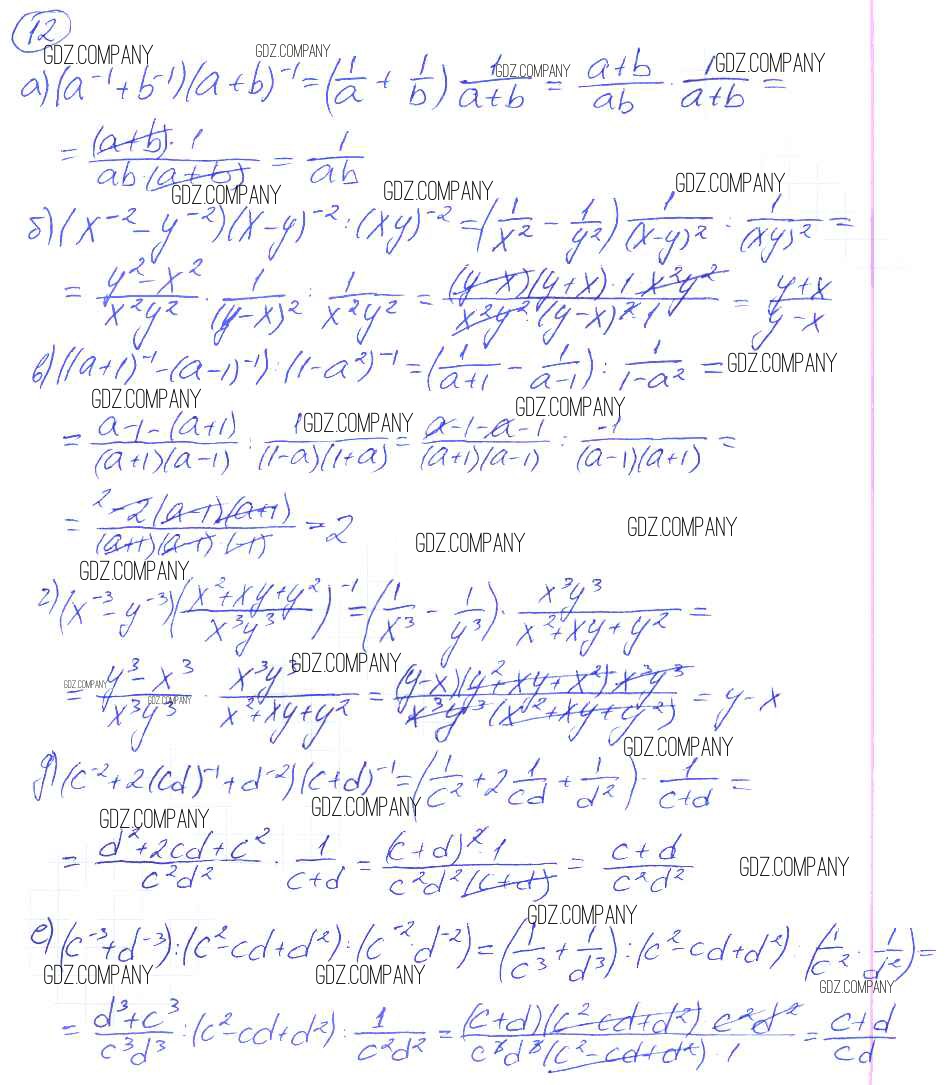 12
GDZ.COMPANY GDZ.COMPANY GDZ.COMPANY GDZ.COMPANY
а) (a⁻¹ + b⁻¹)(a + b)⁻¹ = (1/a + 1/b) 1/(a+b) = (a+b)/(ab) · 1/(a+b) =
= ((a+b)·1)/(ab·(a+b)) = 1/(ab)
GDZ.COMPANY GDZ.COMPANY GDZ.COMPANY
б) (x⁻² − y⁻²)(x−y)⁻² : (xy)⁻² = (1/x² − 1/y²) 1/(x−y)² : 1/(xy)² =
= (y²−x²)/(x²y²) · 1/(y−x)² : 1/(x²y²) = ((y−x)(y+x)·1·x²y²)/(x²y²·(y−x)²·1) = (y+x)/(y−x)
в) ((a+1)⁻¹ − (a−1)⁻¹) : (1−a²)⁻¹ = (1/(a+1) − 1/(a−1)) : 1/(1−a²) =
GDZ.COMPANY
GDZ.COMPANY GDZ.COMPANY GDZ.COMPANY
= (a−1−(a+1))/((a+1)(a−1)) : 1/((1−a)(1+a)) = (a−1−a−1)/((a+1)(a−1)) : −1/((a−1)(a+1)) =
= (−2(a−1)(a+1))/((a+1)(a−1)·(−1)) = 2
GDZ.COMPANY GDZ.COMPANY
GDZ.COMPANY
г) (x⁻³ − y⁻³)((x²+xy+y²)/(x³y³))⁻¹ = (1/x³ − 1/y³) · (x³y³)/(x²+xy+y²) =
GDZ.COMPANY GDZ.COMPANY GDZ.COMPANY
= (y³−x³)/(x³y³) · (x³y³)/(x²+xy+y²) = ((y−x)(y²+xy+x²)·x³y³)/(x³y³(x²+xy+y²)) = y−x
GDZ.COMPANY
д) (c⁻² + 2(cd)⁻¹ + d⁻²)(c+d)⁻¹ = (1/c² + 2 1/(cd) + 1/d²) · 1/(c+d) =
GDZ.COMPANY GDZ.COMPANY
= (d²+2cd+c²)/(c²d²) · 1/(c+d) = ((c+d)²·1)/(c²d²(c+d)) = (c+d)/(c²d²)
GDZ.COMPANY
GDZ.COMPANY
е) (c⁻³ + d⁻³) : (c² − cd + d²) : (c⁻²·d⁻²) = (1/c³ + 1/d³) : (c² − cd + d²) · (1/c² · 1/d²) =
GDZ.COMPANY GDZ.COMPANY GDZ.COMPANY
= (d³+c³)/(c³d³) : (c² − cd + d²) · 1/(c²d²) = ((c+d)(c²−cd+d²) c²d²)/(c³d³(c²−cd+d²)·1) = (c+d)/(cd)